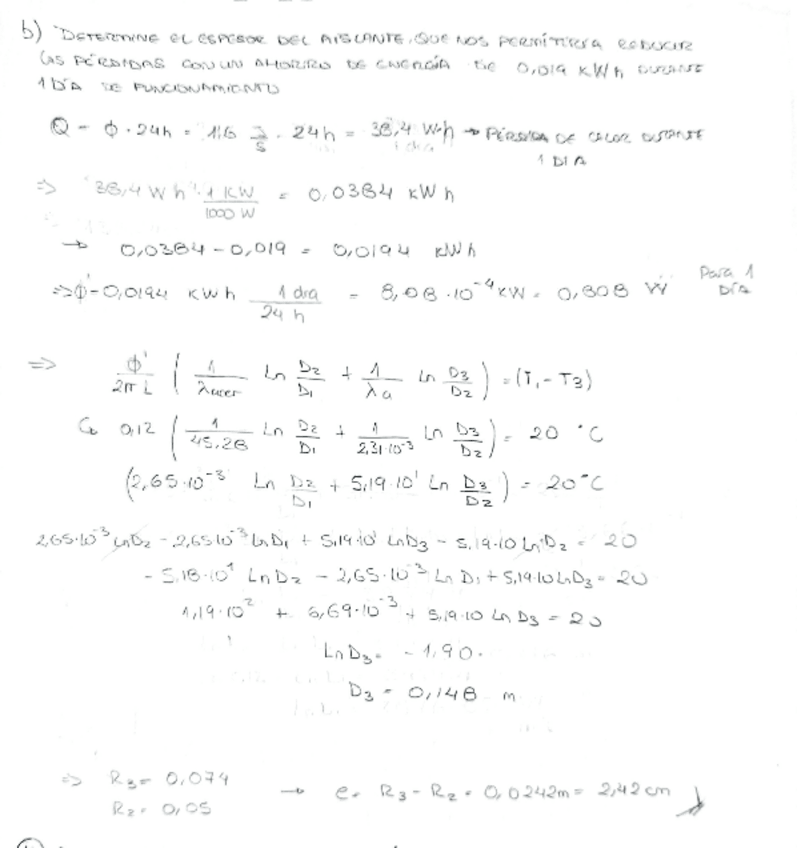 b) DETERMINE EL ESPESOR DEL AISLANTE, QUE NOS PERMITIRÍA REDUCIR
LAS PÉRDIDAS CON UN AHORRO DE ENERGÍA DE 0,019 KWh DURANTE
1 DÍA DE FUNCIONAMIENTO
Q = ϕ · 24h = 1,6 J/s · 24h = 38,4 W·h → PÉRDIDA DE CALOR DURANTE
1 dia
1 DIA
=> 38,4 W h · 1 KW / 1000 W = 0,0384 KW h
→ 0,0384 - 0,019 = 0,0194 KWh
=> ϕ' = 0,0194 KWh 1 dia / 24 h = 8,08 · 10⁻⁴ KW = 0,808 W Para 1 DÍA
=> ϕ' / 2π L ( 1 / λacer Ln D₂/D₁ + 1 / λa Ln D₃/D₂ ) = (T₁ - T₃)
0,12 ( 1 / 45.28 Ln D₂/D₁ + 1 / 2,31·10⁻³ Ln D₃/D₂ ) = 20 °C
(2,65·10⁻³ Ln D₂/D₁ + 5,19·10¹ Ln D₃/D₂ ) = 20°C
2,65·10⁻³ LnD₂ - 2,65·10⁻³ LnD₁ + 5,19·10¹ LnD₃ - 5,19·10 LnD₂ = 20
- 5,18·10¹ LnD₂ - 2,65·10⁻³ Ln D₁ + 5,19·10 LnD₃ = 20
1,19·10² + 6,69·10⁻³ + 5,19·10 Ln D₃ = 20
LnD₃ = -1,90.
D₃ = 0,148 m
=> R₃ = 0,074
R₂ = 0,05
→ e = R₃ - R₂ = 0,0242m = 2,42 cm